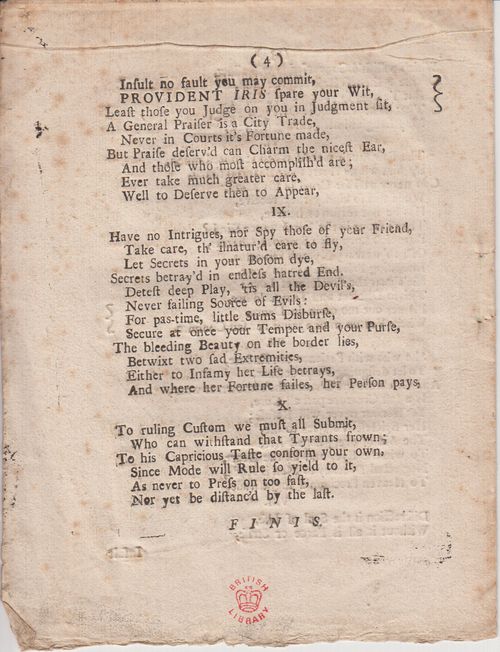 (4)
Inſult no fault you may commit,
PROVIDENT IRIS ſpare your Wit,
Leaſt thoſe you Judge on you in Judgment ſit,
A General Praiſer is a City Trade,
Never in Courts it's Fortune made,
But Praiſe deſerv'd can Charm the niceſt Ear,
And thoſe who moſt accompliſh'd are;
Ever take much greater care,
Well to Deſerve then to Appear,
IX.
Have no Intrigues, nor Spy thoſe of your Friend,
Take care, th' ilnatur'd care to fly,
Let Secrets in your Boſom dye,
Secrets betray'd in endleſs hatred End.
Deteſt deep Play, 'tis all the Devil's,
Never failing Source of Evils:
For pas-time, little Sums Disburſe,
Secure at once your Temper and your Purſe,
The bleeding Beauty on the border lies,
Betwixt two ſad Extremities,
Either to Infamy her Life betrays,
And where her Fortune failes, her Perſon pays,
X.
To ruling Cuſtom we muſt all Submit,
Who can withſtand that Tyrants frown;
To his Capricious Taſte conform your own,
Since Mode will Rule ſo yield to it,
As never to Preſs on too faſt,
Nor yet be diſtanc'd by the laſt.
FINIS.
BRITISH
LIBRARY